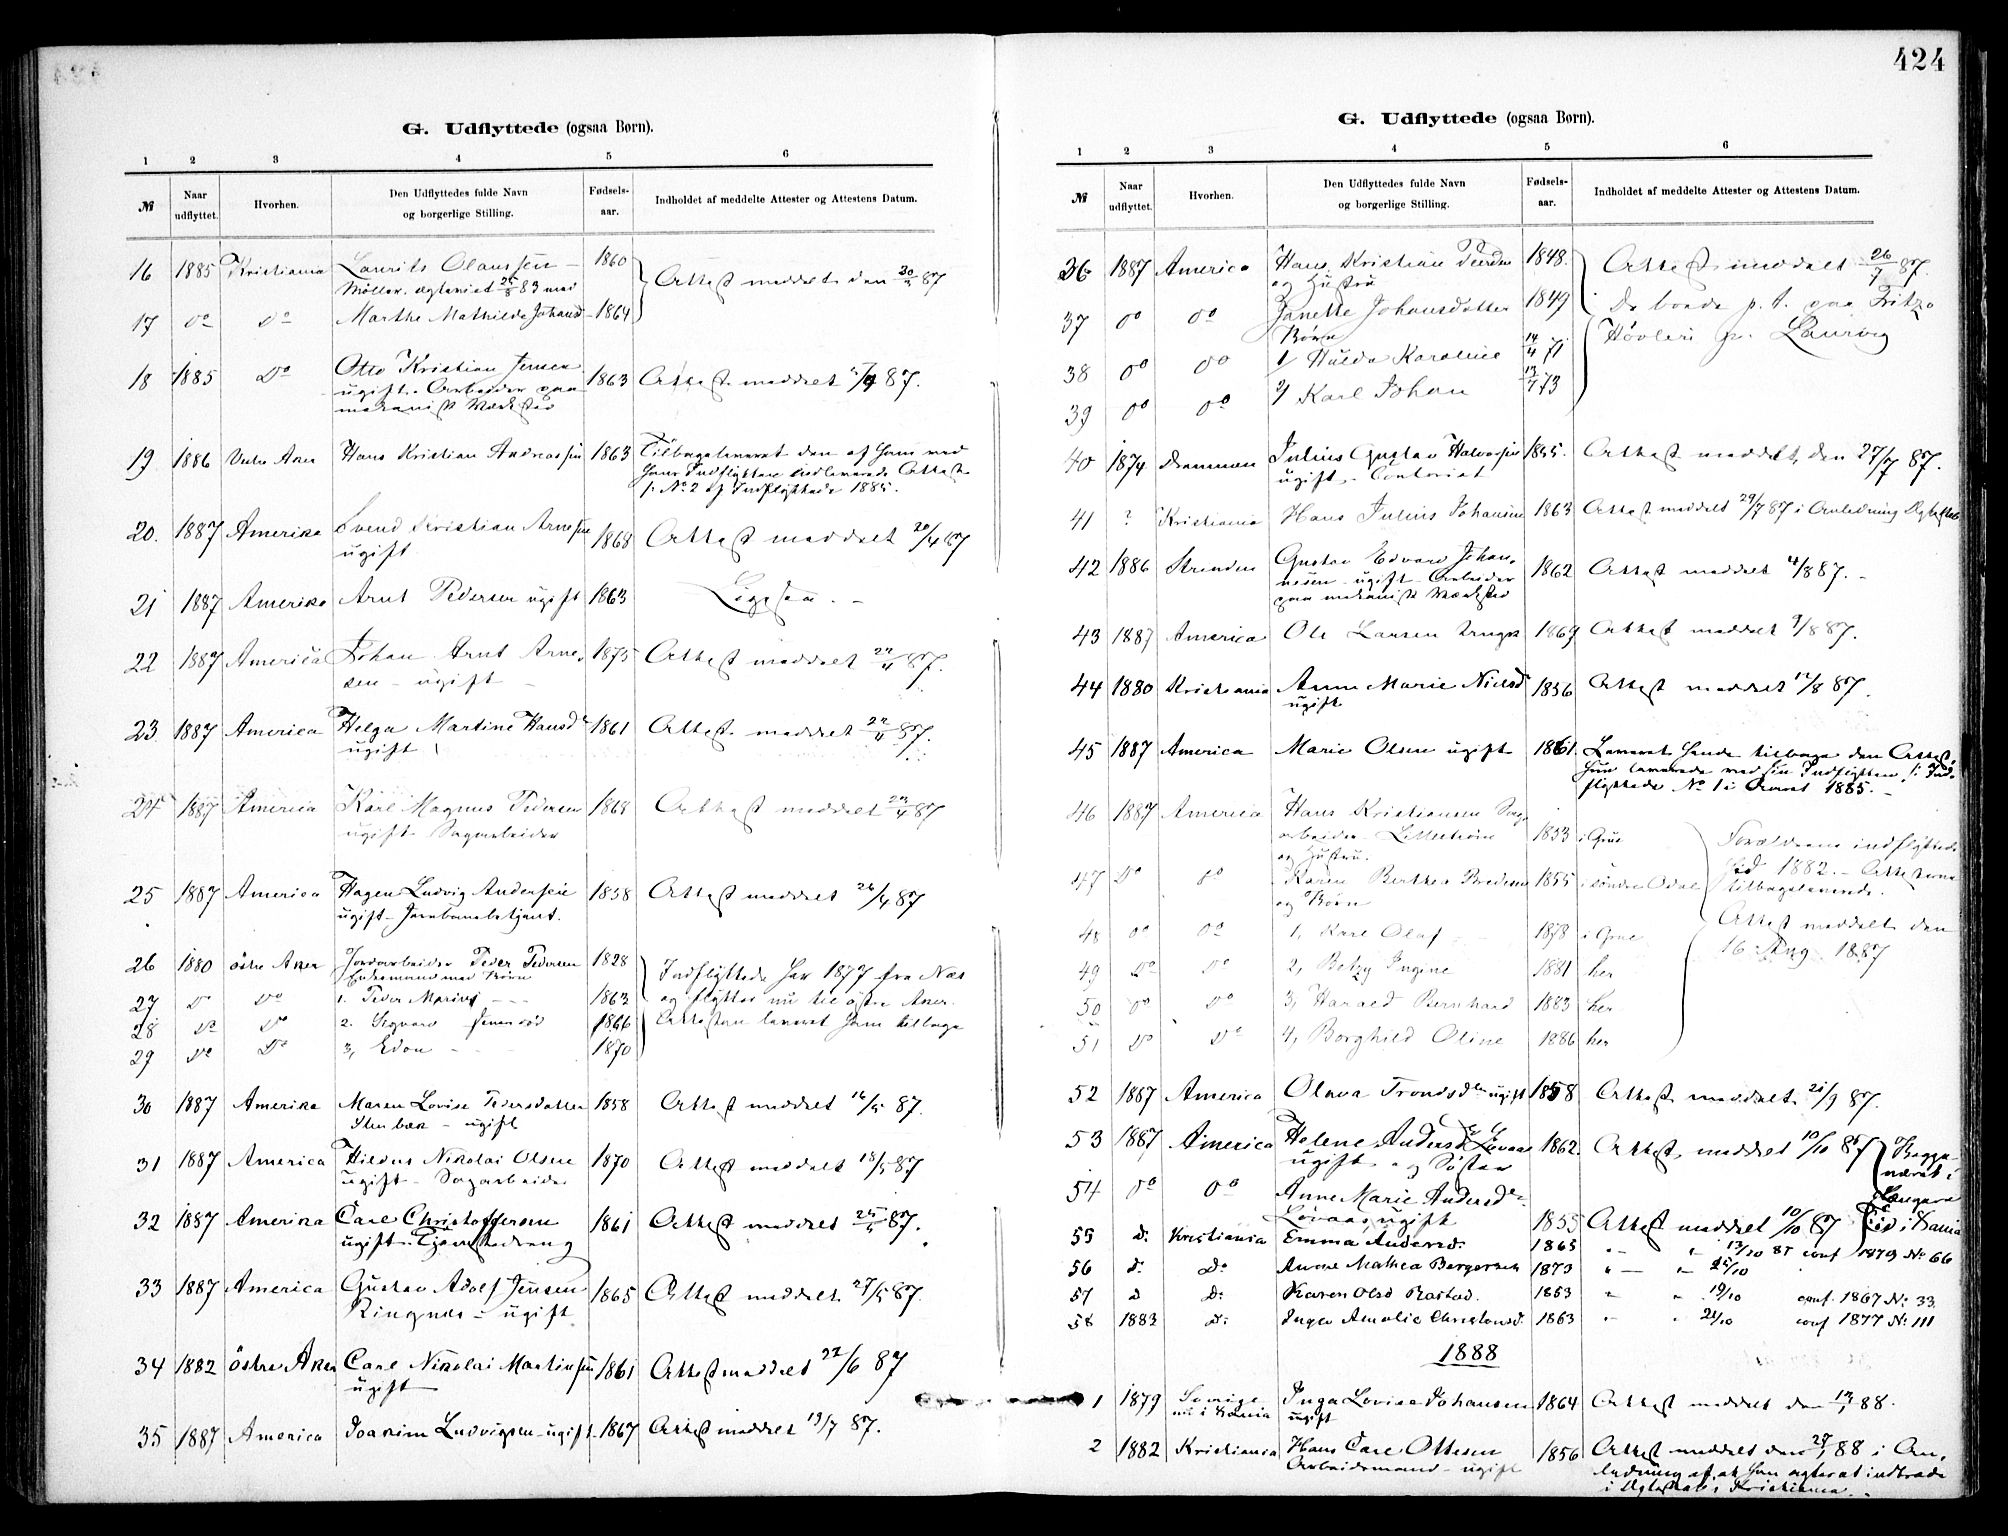 424
G. Udflyttede (ogsaa Børn).
1 2 3 4 5 6
№ Naar udflyttet. Hvorhen. Den Udflyttedes fulde Navn og borgerlige Stilling. Fødsels-aar. Indholdet af meddelte Attester og Attestens Datum.
16 1885 Kristiania Laurits Olaussen 1860 Attest meddelt den 87
Møller. 83 med
17 Do Do Marthe Mathilde Johansd 1864
18 1885 Do Otto Kristian Jensen 1863 Attest meddelt 87.
ugift. Arbeider paa
mekanisk Værksted
19 1886 Vestre Aker Hans Kristian Andreassen 1863 Tilbageleveret den af ham ved
hans Indflytten indleverede Attest
f. No. 2 af Indflyttede 1885.
20. 1887 Amerika Svend Kristian Arnesen 1868 Attest meddelt 20/4 87
ugift
21 1887 Amerika Arnt Pedersen ugift 1863 Ligesaa.
22 1887 America Johan Arnt Arne- 1875 Attest meddelt 22/4 87.
sen - ugift
23 1887 America Helga Martine Hansdr 1861 Attest meddelt 22/4 87.
ugift
24 1887 America Karl Magnus Pedersen 1868 Attest meddelt 23/4 87
ugift Sagarbeider
25 1887 America Hagen Ludvig Andersen 1858 Attest meddelt 26/4 87
ugift - Jernbanebetjent.
26 1880 østre Aker Jordarbeider Peder Pedersen 1828 Indflyttede her 1877 fra Næs
Enkemand med Børn
27 Do Do 1. Peder Marius 1862 og flytter nu til østre Aker.
28 Do Do 2. Sigvard 1866 Attesten leveret ham tilbage
29 Do Do 3, Edon 1870
30 1887 Amerika Maren Lovise Pedersdatter 1858 Attest meddelt 16/5 87.
Stenbæk - ugift
31 1887 America Hildus Nikolai Olsen 1870 Attest meddelt 18/5 87
ugift - Sagarbeider
32 1887 Amerika Carl Christoffersen 1861 Attest meddelt 25/5 87.
ugift. Tjenestedreng
33 1887 America Gustav Adolf Jensen 1865 Attest meddelt 27/5 87.
Ringnes - ugift
34 1882 østre Aker Carl Nikolai Martinsen 1861 Attest meddelt 22/6 87
ugift
35 1887 America Joakim Ludvigsen - ugift 1867 Attest meddelt 13/7 87.
G. Udflyttede (ogsaa Børn).
1 2 3 4 5 6
№ Naar udflyttet. Hvorhen. Den Udflyttedes fulde Navn og borgerlige Stilling. Fødsels-aar. Indholdet af meddelte Attester og Attestens Datum.
36 1887 America Hans Kristian Pedersen 1848. Attest meddelt 26/7 87.
og Hustru
37 Do Do Janette Johansdatter 1849 De boede p. t. paa Fritzø
Børn Høvleri pr. Laurvig
38 Do Do 1/ Hulda Karoline 14/4 71
39 Do Do 2/ Karl Johan 73
40 1874 Drammen Julius Gustav Halvorsen 1855. Attest meddelt, den 27/7 87.
ugift - Contorist
41 ? Kristiania Hans Julius Johansen 1863 Attest meddelt 29/7 87 i Anledning Ægteskab
42 1886 Strinden Gustav Edvard Johan- 1862 Attest meddelt 4/8 87.
nesen - ugift - Arbeider
paa mekanisk Værksted
43 1887 America Ole Larsen 1869 Attest meddelt 9/8 87.
44 1880 Kristiania Anne Marie Nielsdr 1856 Attest meddelt 12/8 87.
ugift
45 1887 America Marie Olsen ugift 1861. Leveret hende tilbage den Attest,
hun leverede ved sin Indflytten f. Ind-
flyttede No 1 i Aaret 1885.
46 1887 America Hans Kristiansen Sag-
arbeider - Lillestrøm 1853 i Grue Forældrene indflyttede
og Hustru. hid 1882. - Attesterne
47 Do Do Karen Berthea 1855 i søndre Odal tilbageleverede.
og Børn
48 Do Do 1, Karl Olaf 1878 i Grue Attest meddelt den
49 Do Do 2, Betzy Ingine 1881 her 16 Aug 1887
50 Do Do 3, Harald Bernhard 1883 her
51 Do Do 4, Borghild Oline 1886 her
52 1887 America Olava Trondsdr ugift 1858 Attest meddelt 21/9 87.
53 1887 America Helene Andersdr Løvaas 1862. Attest meddelt 10/10 87 Begge
ugift - og Søster været i
54 Do Do Anne Marie Andersdr
Løvaas, ugift 1855 Attest meddelt 10/10 87
55 d: Kristiania Emma Andersd: 1865 13/10 87 conf 1879 No 66
56 d: Do Anne Mathea Bergersen 1873 25/10
57 d D: Karen Olsd Rastad. 1853 19/10 conf. 1867 No: 33.
58 1883 D: Inga Amalie Christensd. 1863 24/10 conf 1877 No: 111
1888
1 1879 Sverige Inga Lovise Johansen 1864 Attest meddelt den 88.
nu i Kania ugift
2 1882 Kristiania Hans Carl Ottesen 1856 Attest meddelt den 88 i An-
Arbeidsmand - ugift ledning af at han agter at indtræde
i Ægteskab i Kristiania.